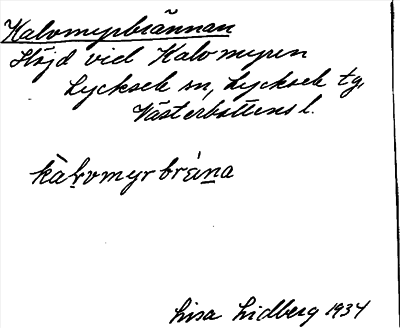 Kalvomyrbrännan
Höjd vid Kalvomyren
Lycksele sn, Lycksele tg,
Västerbottens l.
kàḷvomyrbrä́n̲a
Lisa Lidberg 1934